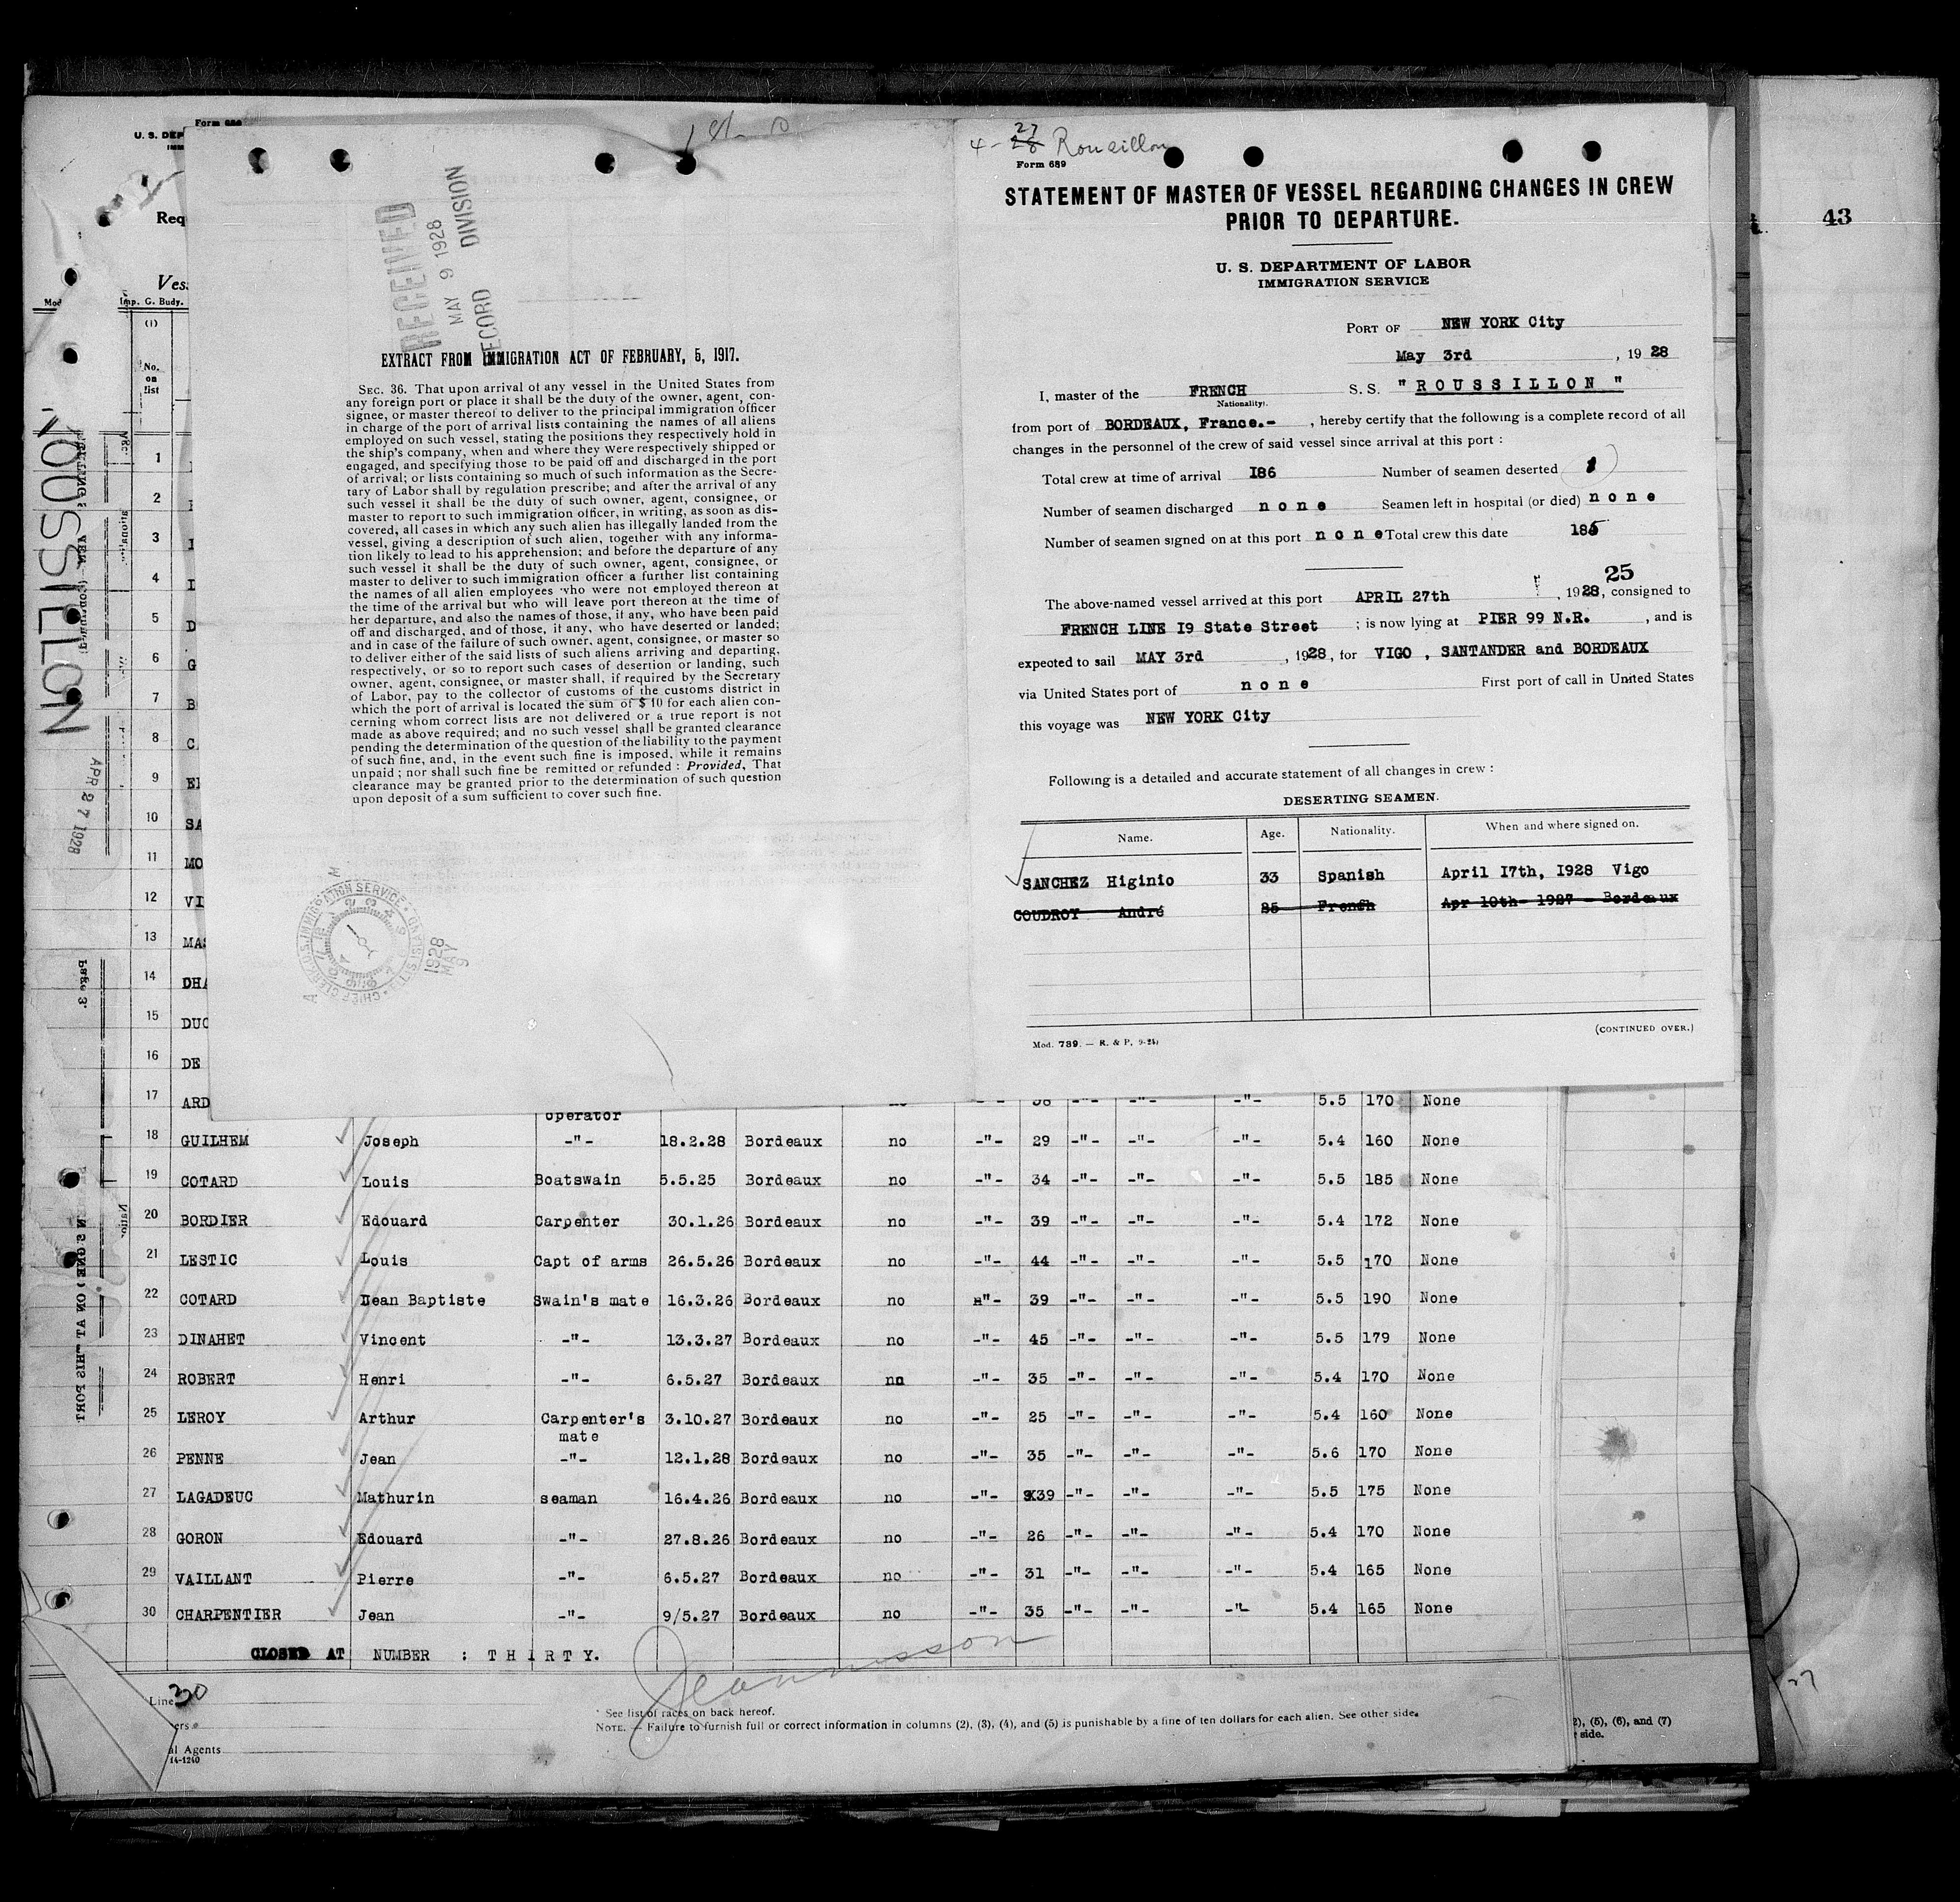 Form 689
U. S. DEP
Req
Imp. G. Budy.
(1)
No.
on
list
1
2
3
4
5
6
7
8
9
10
11
12
13
14
15
16
ROUSSILLON
APR 27 1928
Page 3.
RECEIVED
MAY 9 1928
RECORD DIVISION
EXTRACT FROM IMMIGRATION ACT OF FEBRUARY, 5, 1917.
SEC. 36. That upon arrival of any vessel in the United States from
any foreign port or place it shall be the duty of the owner, agent, con-
signee, or master thereof to deliver to the principal immigration officer
in charge of the port of arrival lists containing the names of all aliens
employed on such vessel, stating the positions they respectively hold in
the ship's company, when and where they were respectively shipped or
engaged, and specifying those to be paid off and discharged in the port
of arrival; or lists containing so much of such information as the Secre-
tary of Labor shall by regulation prescribe; and after the arrival of any
such vessel it shall be the duty of such owner, agent, consignee, or
master to report to such immigration officer, in writing, as soon as dis-
covered, all cases in which any such alien has illegally landed from the
vessel, giving a description of such alien, together with any informa-
tion likely to lead to his apprehension; and before the departure of any
such vessel it shall be the duty of such owner, agent, consignee, or
master to deliver to such immigration officer a further list containing
the names of all alien employees who were not employed thereon at
the time of the arrival but who will leave port thereon at the time of
her departure, and also the names of those, if any, who have been paid
off and discharged, and of those, if any, who have deserted or landed;
and in case of the failure of such owner, agent, consignee, or master so
to deliver either of the said lists of such aliens arriving and departing,
respectively, or so to report such cases of desertion or landing, such
owner, agent, consignee, or master shall, if required by the Secretary
of Labor, pay to the collector of customs of the customs district in
which the port of arrival is located the sum of $ 10 for each alien con-
cerning whom correct lists are not delivered or a true report is not
made as above required; and no such vessel shall be granted clearance
pending the determination of the question of the liability to the payment
of such fine, and, in the event such fine is imposed, while it remains
unpaid ; nor shall such fine be remitted or refunded : Provided, That
clearance may be granted prior to the determination of such question
upon deposit of a sum sufficient to cover such fine.
CHIEF CLERK U.S. IMMIGRATION SERVICE ELLIS ISLAND
1928
MAY
9
27
4-28 Roussillon
Form 689
STATEMENT OF MASTER OF VESSEL REGARDING CHANGES IN CREW
PRIOR TO DEPARTURE.
U. S. DEPARTMENT OF LABOR
IMMIGRATION SERVICE
PORT OF NEW YORK City
May 3rd , 19 28
I, master of the FRENCH S. S. " ROUSSILLON "
Nationality).
from port of BORDEAUX, France.- , hereby certify that the following is a complete record of all
changes in the personnel of the crew of said vessel since arrival at this port :
Total crew at time of arrival I86 Number of seamen deserted 1
Number of seamen discharged none Seamen left in hospital (or died) none
Number of seamen signed on at this port none Total crew this date 185
25
The above-named vessel arrived at this port APRIL 27th , 1928, consigned to
FRENCH LINE I9 State Street ; is now lying at PIER 99 N.R. , and is
expected to sail MAY 3rd , 1928, for VIGO , SANTANDER and BORDEAUX
via United States port of none First port of call in United States
this voyage was NEW YORK City
Following is a detailed and accurate statement of all changes in crew :
DESERTING SEAMEN.
Name. Age. Nationality. When and where signed on.
SANCHEZ Higinio 33 Spanish April I7th, I928 Vigo
COUDROY André 25 French Apr 10th- 1927 - Bordeaux
(CONTINUED OVER.)
Mod. 789. — R. & P. 9-24)
43
17 ARD operator no -"- 38 -"- -"- -"- 5.5 170 None
18 GUILHEM Joseph -"- 18.2.28 Bordeaux no -"- 29 -"- -"- -"- 5.4 160 None
19 COTARD Louis Boatswain 5.5.25 Bordeaux no -"- 34 -"- -"- -"- 5.5 185 None
20 BORDIER Edouard Carpenter 30.1.26 Bordeaux no -"- 39 -"- -"- -"- 5.4 172 None
21 LESTIC Louis Capt of arms 26.5.26 Bordeaux no -"- 44 -"- -"- -"- 5.5 170 None
22 COTARD Jean Baptiste Swain's mate 16.3.26 Bordeaux no -"- 39 -"- -"- -"- 5.5 190 None
23 DINAHET Vincent -"- 13.3.27 Bordeaux no -"- 45 -"- -"- -"- 5.5 179 None
24 ROBERT Henri -"- 6.5.27 Bordeaux no -"- 35 -"- -"- -"- 5.4 170 None
25 LEROY Arthur Carpenter's 3.10.27 Bordeaux no -"- 25 -"- -"- -"- 5.4 160 None
mate
26 PENNE Jean -"- 12.1.28 Bordeaux no -"- 35 -"- -"- -"- 5.6 170 None
27 LAGADEUC Mathurin seaman 16.4.26 Bordeaux no -"- 39 -"- -"- -"- 5.5 175 None
28 GORON Edouard -"- 27.8.26 Bordeaux no -"- 26 -"- -"- -"- 5.4 170 None
29 VAILLANT Pierre -"- 6.5.27 Bordeaux no -"- 31 -"- -"- -"- 5.4 165 None
30 CHARPENTIER Jean -"- 9/5.27 Bordeaux no -"- 35 -"- -"- -"- 5.4 165 None
CLOSED AT NUMBER : THIRTY.
Line 30
ers
al Agents
14-1240
Jeannesson
* See list of races on back hereof.
NOTE. — Failure to furnish full or correct information in columns (2), (3), (4), and (5) is punishable by a fine of ten dollars for each alien. See other side.
2), (5), (6), and (7)
side.
27